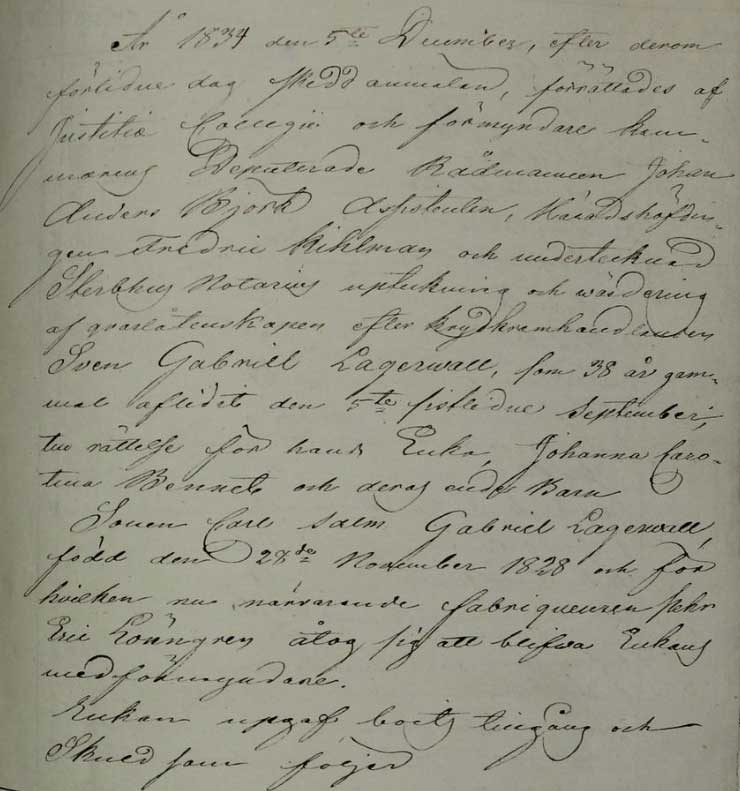 År 1834 den 5te December, efter derom
förlidne dag skedd anmälan, förrättades af
Justitiæ Collegii och förmyndare Kam-
marens Deputerade Rådmannen Johan
Anders Björk Assistenten, Häradshöfdin-
gen Fredric Kihlman och undertecknad
Sterbhus Notarius uptekning och wärdering
af qvarlåtenskapen efter Krydkramhandlanden
Sven Gabriell Lagerwall, som 38 år gam-
mal aflidit den 5te sistlidne September,
till rättelse för hans Enka, Johanna Caro-
lina Bennet och deras enda Barn
Sonen Carl Gabriel Lagerwall,
född den 28de November 1828 och för
hvilken nu närvarande fabriqueuren Herr
Eric Lönngren åtog sig att blifwa Enkans
medförmyndare.
Enkan upgaf boets tillgång och
Skuld som följer